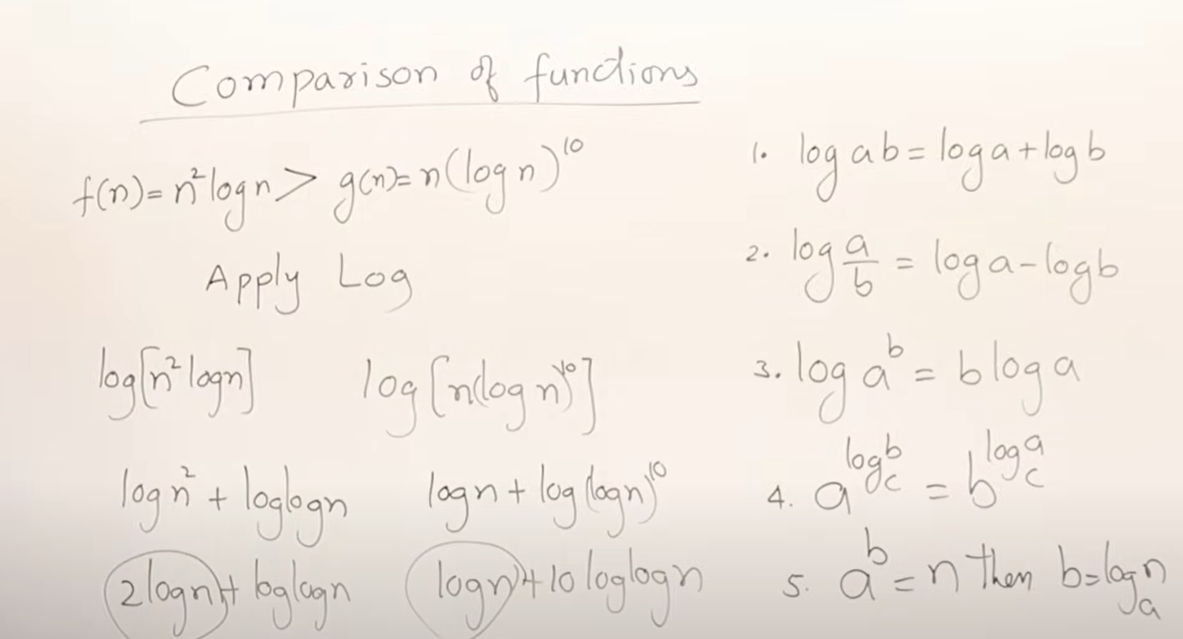 Comparison of functions
f(n)= n²logn > g(n)= n(log n)¹⁰
Apply Log
log[n² logn] log[n(log n)¹⁰]
log n² + loglogn logn + log(logn)¹⁰
2logn + loglogn logn + 10 loglogn
1. log ab = loga + logb
2. log a/b = loga - logb
3. log aᵇ = b log a
4. a^(log_c b) = b^(log_c a)
5. aᵇ = n then b = log_a n